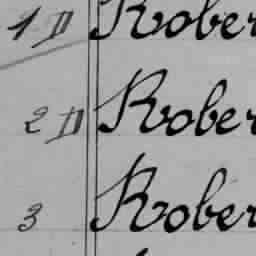 1 D Rober
2 D Rober
3 Rober